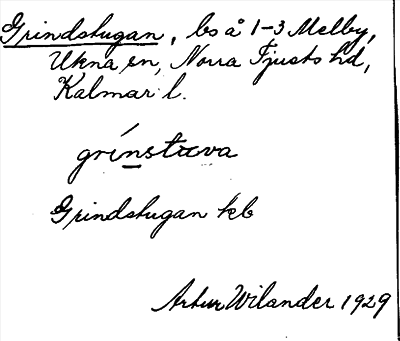 Grindstugan, bs å 1-3 Melby,
Ukna sn, Norra Tjusts hd,
Kalmar l.
grínstuva
Grindstugan kb
Artur Wilander 1929